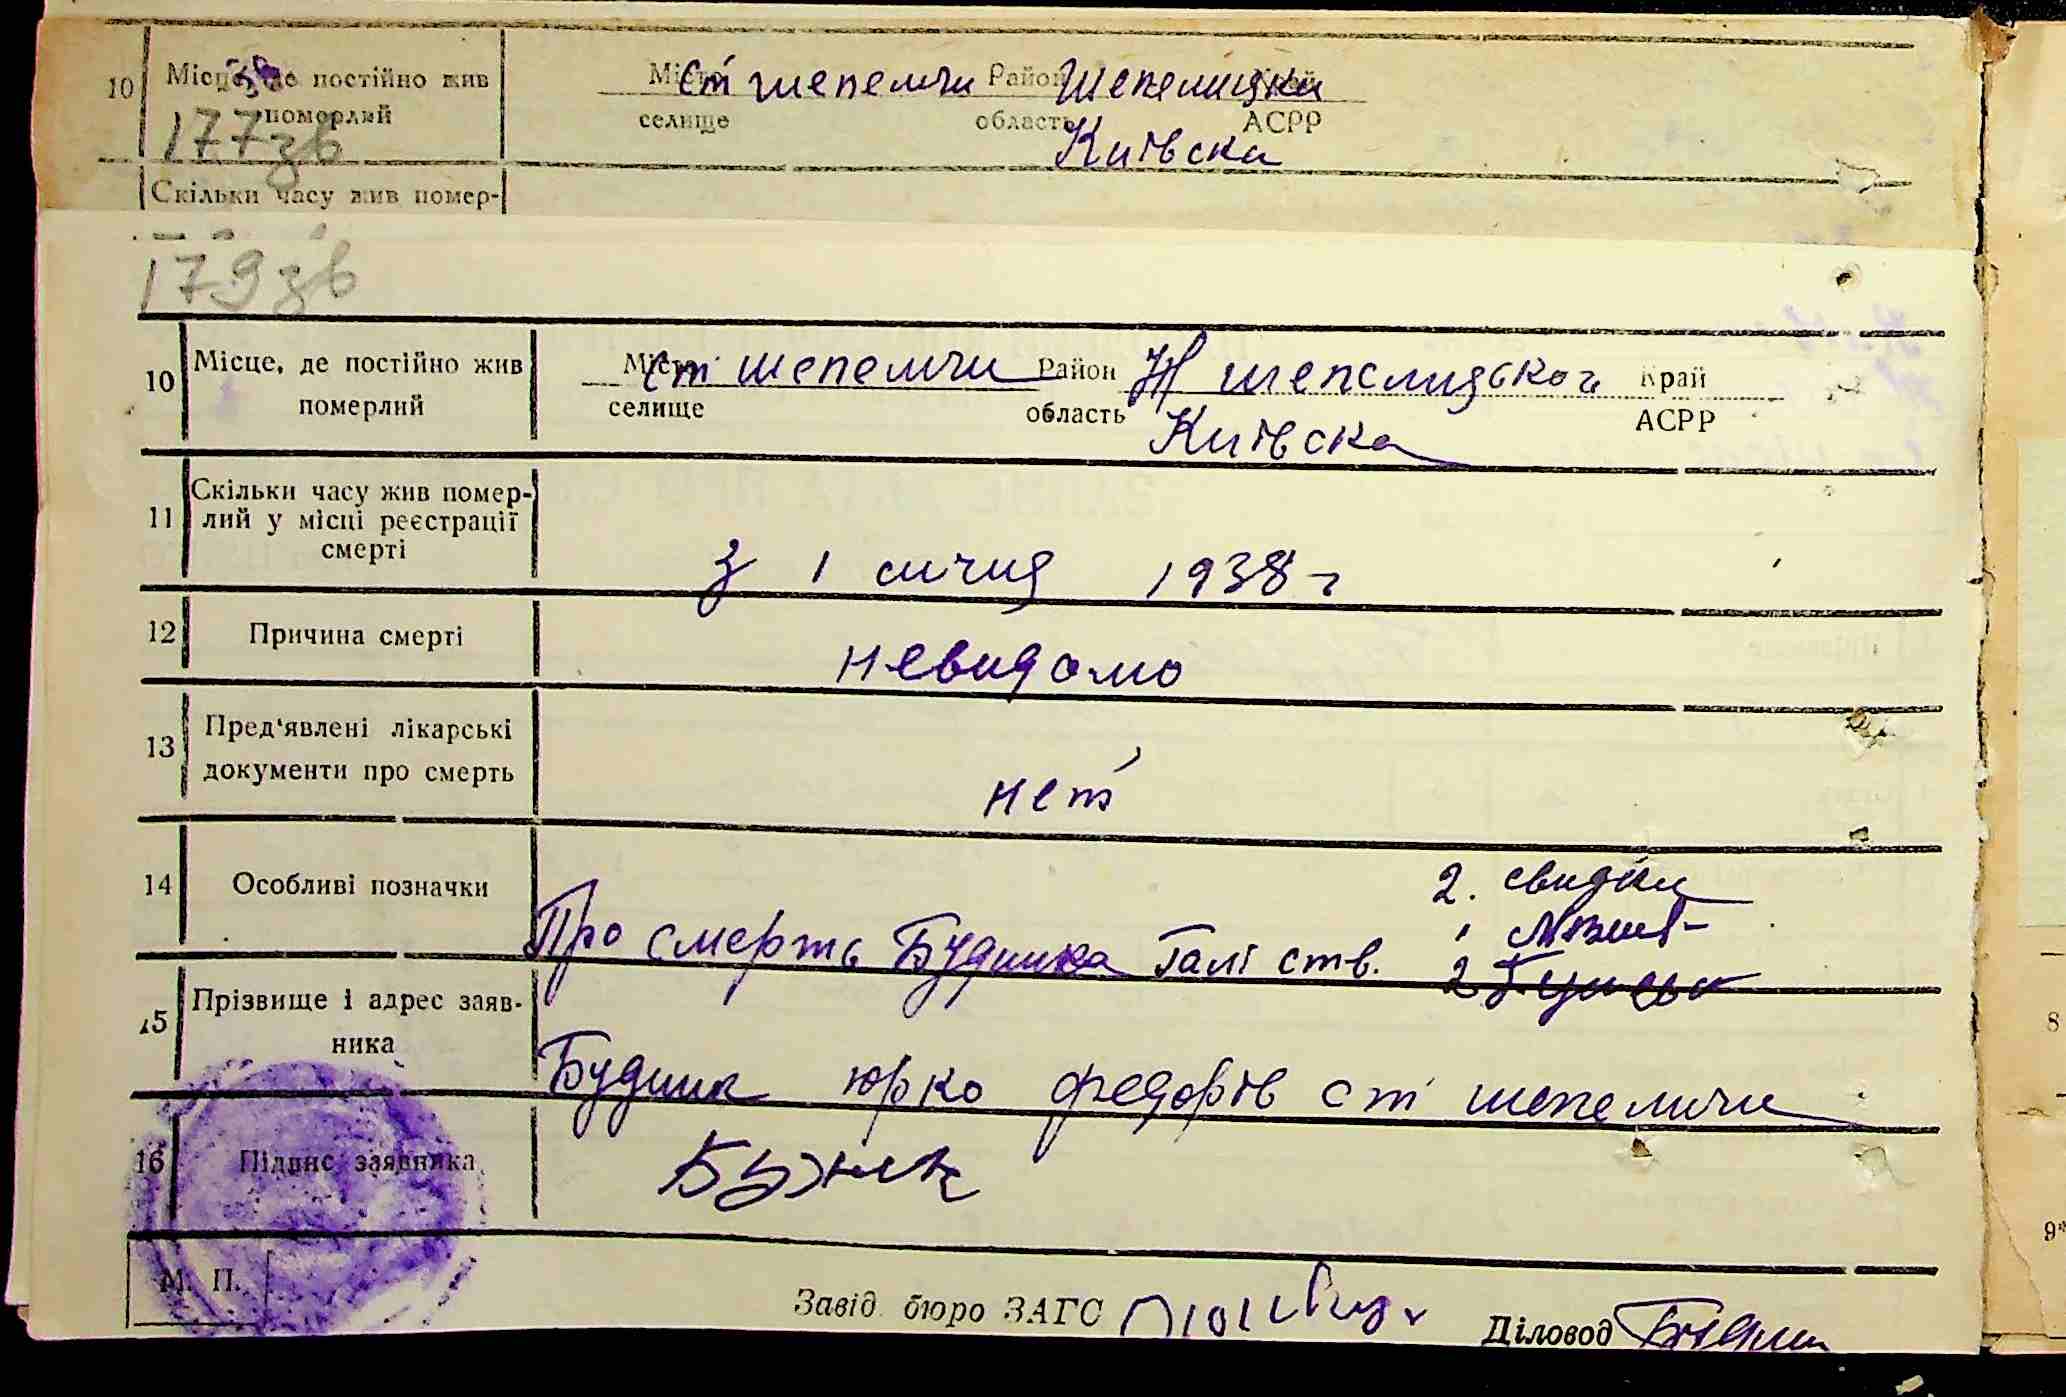 10 Місце, де постійно жив Місто Ст шепеличи Район Шепелицка Край
померлий селище область АСРР
177зв Київска
Скільки часу жив помер-
179зв
10 Місце, де постійно жив Місто Ст шепеличи Район шепелицького Край
померлий селище область АСРР
Київска
11 Скільки часу жив помер-
лий у місці реєстрації
смерті
З 1 січня 1938 г
12 Причина смерті невидомо
13 Пред'явлені лікарські
документи про смерть нет
14 Особливі позначки 2. свидки
1
Про смерть Будника Галі ств. 2
15 Прізвище і адрес заяв-
ника
Будник юрко федорів ст шепеличи
16 Підпис заявника Будник
М. П.
Завід. бюро ЗАГС
Діловод
8
9*